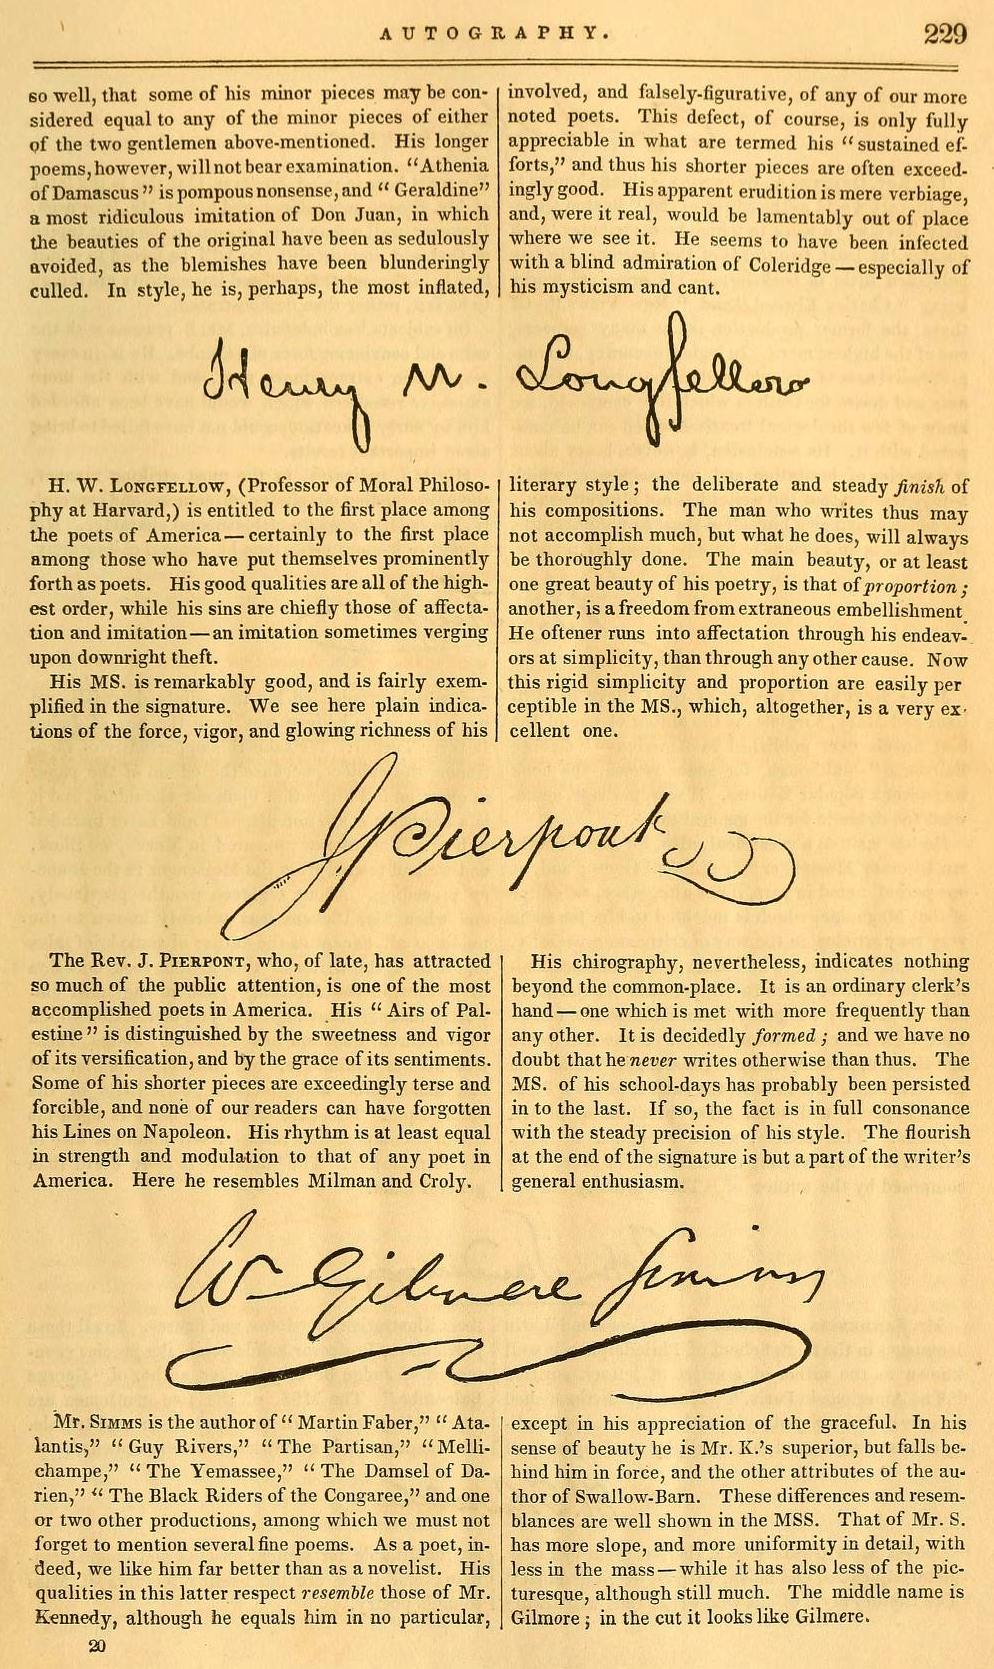 AUTOGRAPHY.
229
so well, that some of his minor pieces may be con-
sidered equal to any of the minor pieces of either
of the two gentlemen above-mentioned. His longer
poems, however, will not bear examination. "Athenia
of Damascus" is pompous nonsense, and "Geraldine"
a most ridiculous imitation of Don Juan, in which
the beauties of the original have been as sedulously
avoided, as the blemishes have been blunderingly
culled. In style, he is, perhaps, the most inflated,
involved, and falsely-figurative, of any of our more
noted poets. This defect, of course, is only fully
appreciable in what are termed his "sustained ef-
forts," and thus his shorter pieces are often exceed-
ingly good. His apparent erudition is mere verbiage,
and, were it real, would be lamentably out of place
where we see it. He seems to have been infected
with a blind admiration of Coleridge—especially of
his mysticism and cant.
Henry W. Longfellow
H. W. LONGFELLOW, (Professor of Moral Philoso-
phy at Harvard,) is entitled to the first place among
the poets of America—certainly to the first place
among those who have put themselves prominently
forth as poets. His good qualities are all of the high-
est order, while his sins are chiefly those of affecta-
tion and imitation—an imitation sometimes verging
upon downright theft.
His MS. is remarkably good, and is fairly exem-
plified in the signature. We see here plain indica-
tions of the force, vigor, and glowing richness of his
literary style; the deliberate and steady finish of
his compositions. The man who writes thus may
not accomplish much, but what he does, will always
be thoroughly done. The main beauty, or at least
one great beauty of his poetry, is that of proportion;
another, is a freedom from extraneous embellishment.
He oftener runs into affectation through his endeav-
ors at simplicity, than through any other cause. Now
this rigid simplicity and proportion are easily per
ceptible in the MS., which, altogether, is a very ex-
cellent one.
J. Pierpont
The Rev. J. PIERPONT, who, of late, has attracted
so much of the public attention, is one of the most
accomplished poets in America. His "Airs of Pal-
estine" is distinguished by the sweetness and vigor
of its versification, and by the grace of its sentiments.
Some of his shorter pieces are exceedingly terse and
forcible, and none of our readers can have forgotten
his Lines on Napoleon. His rhythm is at least equal
in strength and modulation to that of any poet in
America. Here he resembles Milman and Croly.
His chirography, nevertheless, indicates nothing
beyond the common-place. It is an ordinary clerk's
hand—one which is met with more frequently than
any other. It is decidedly formed; and we have no
doubt that he never writes otherwise than thus. The
MS. of his school-days has probably been persisted
in to the last. If so, the fact is in full consonance
with the steady precision of his style. The flourish
at the end of the signature is but a part of the writer's
general enthusiasm.
W. Gilmore Simms
Mr. SIMMS is the author of "Martin Faber," "Ata-
lantis," "Guy Rivers," "The Partisan," "Melli-
champe," "The Yemassee," "The Damsel of Da-
rien," "The Black Riders of the Congaree," and one
or two other productions, among which we must not
forget to mention several fine poems. As a poet, in-
deed, we like him far better than as a novelist. His
qualities in this latter respect resemble those of Mr.
Kennedy, although he equals him in no particular,
except in his appreciation of the graceful. In his
sense of beauty he is Mr. K.'s superior, but falls be-
hind him in force, and the other attributes of the au-
thor of Swallow-Barn. These differences and resem-
blances are well shown in the MSS. That of Mr. S.
has more slope, and more uniformity in detail, with
less in the mass—while it has also less of the pic-
turesque, although still much. The middle name is
Gilmore; in the cut it looks like Gilmere.
20